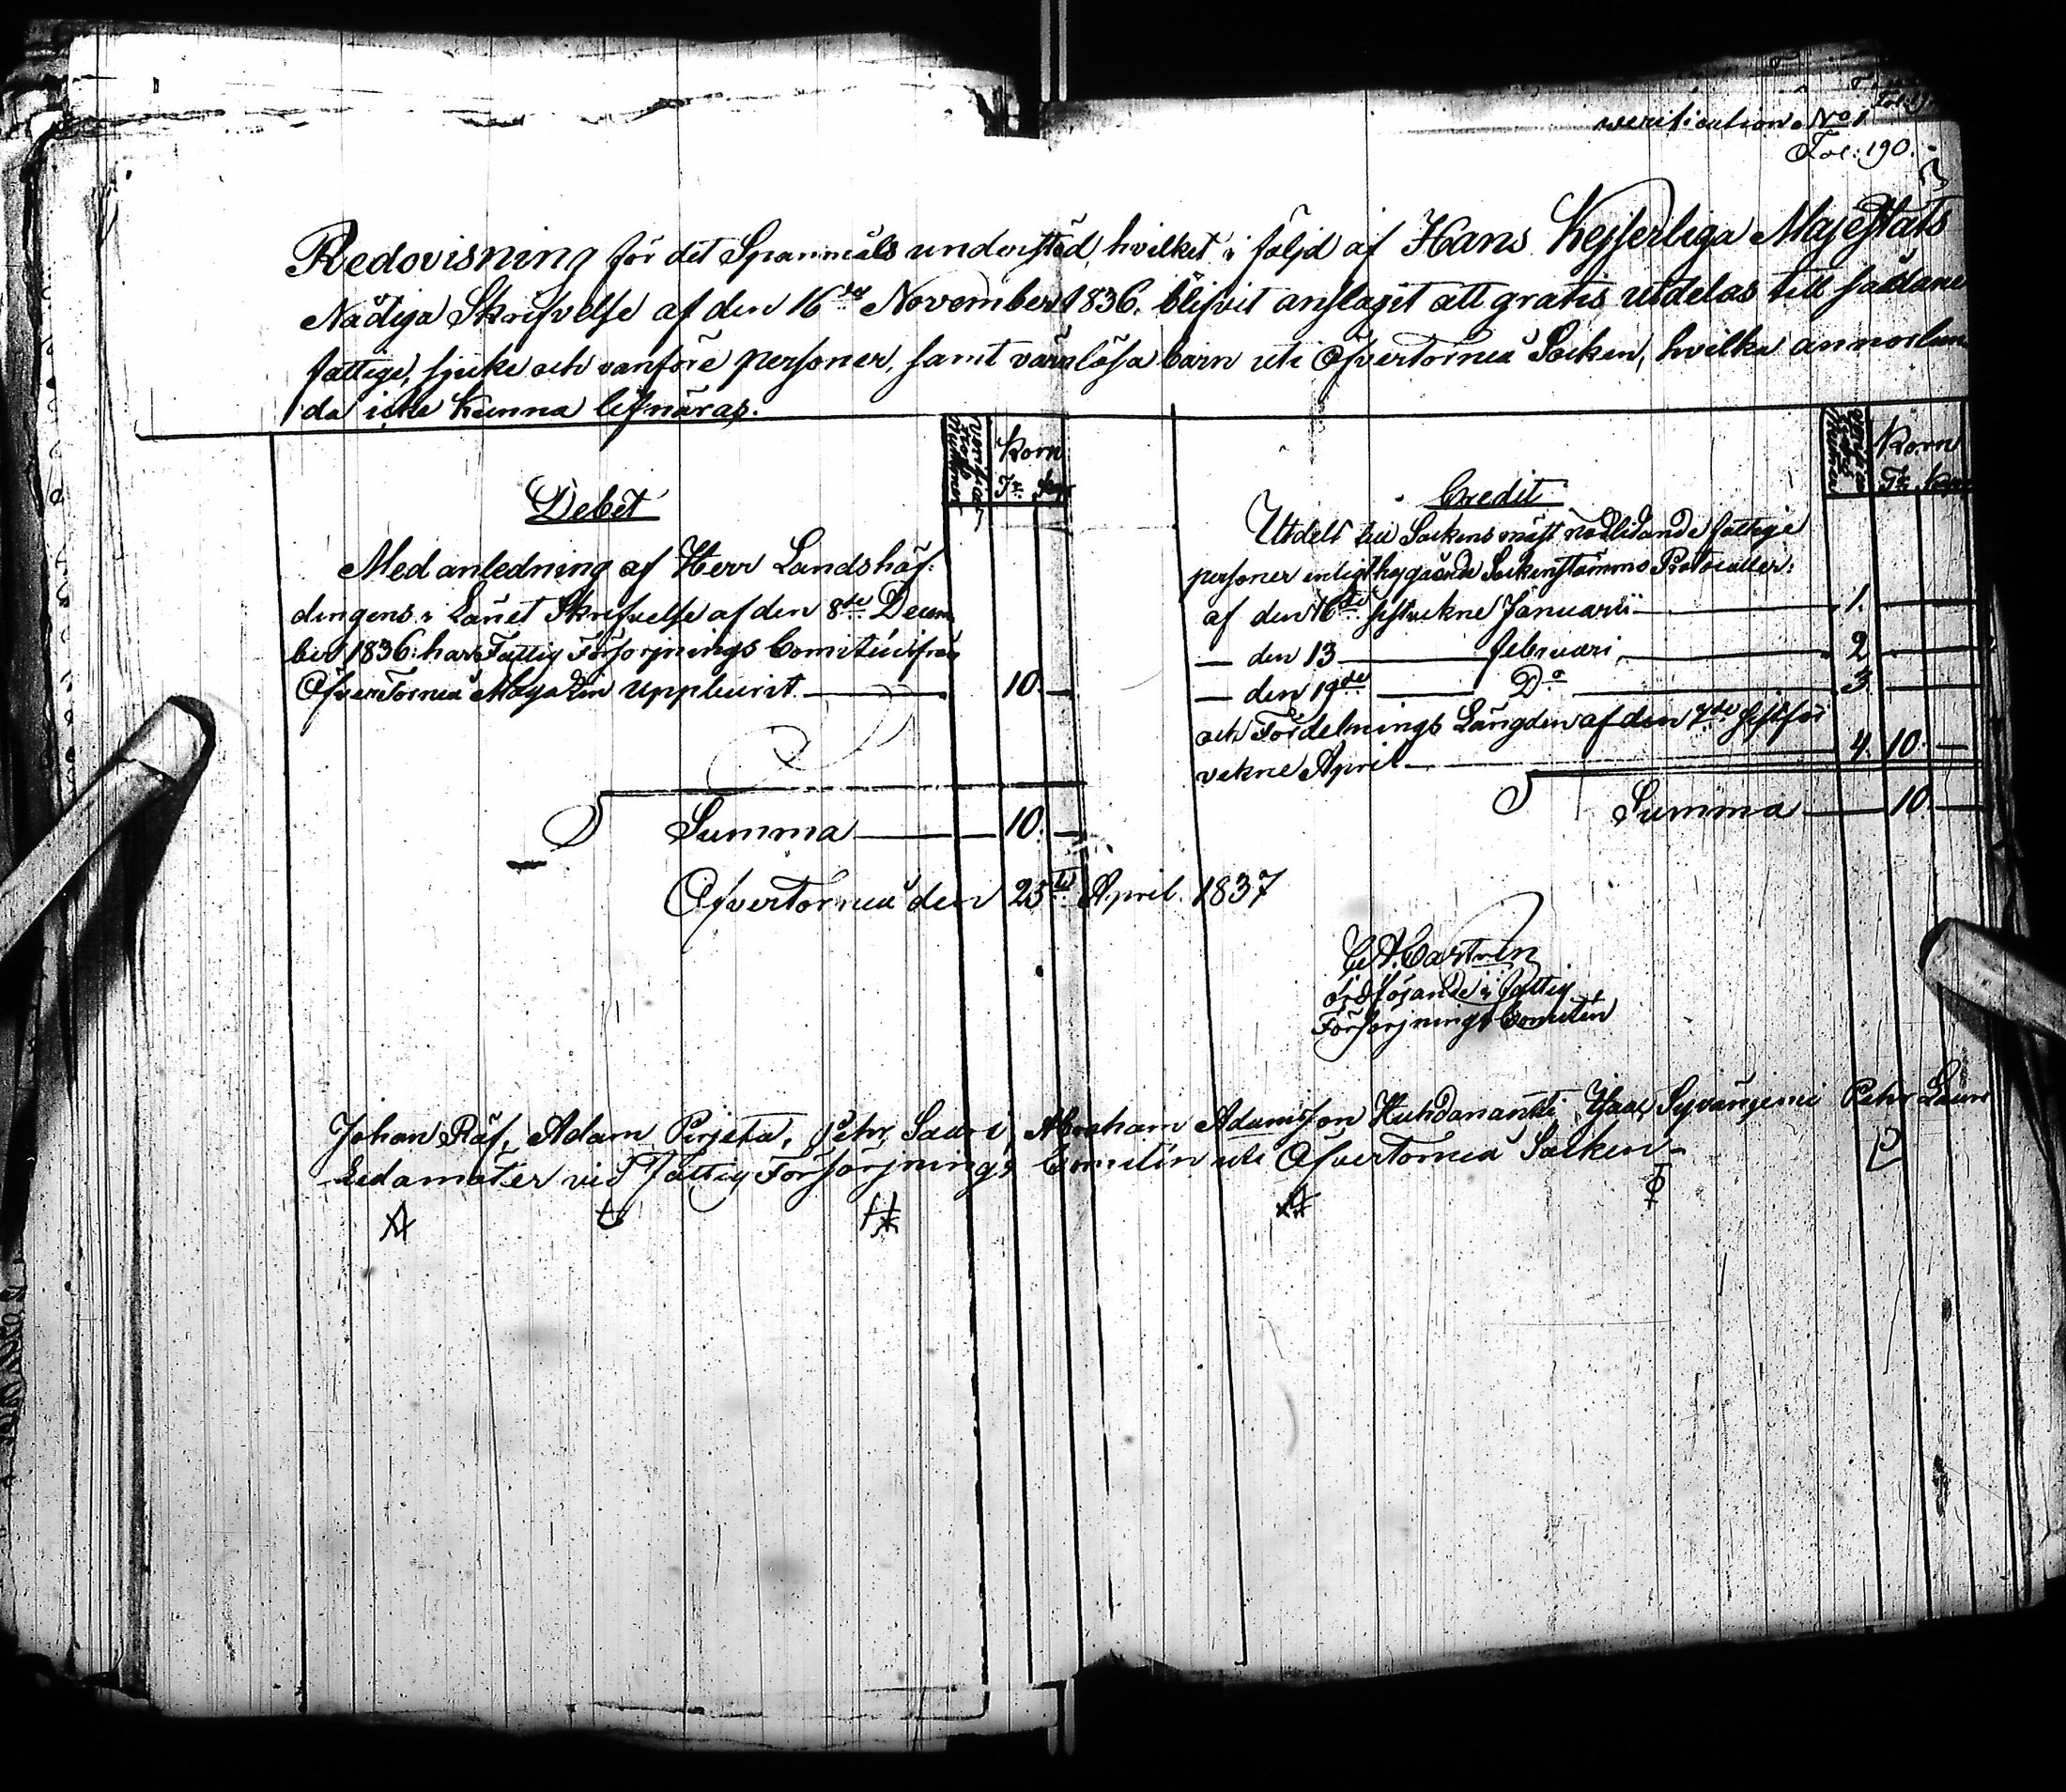 verification No 1
Fol: 190.
Redovisning för det Spanmåls understöd, hvilket i följd af Hans Kejserliga Majestäts
Nådiga Skrifvelse af den 16de November 1836. blifvit anslaget att gratis utdelas till sådane
fattige, sjuke och vanföre personer, samt värnlösa barn uti Öfvertorneå Socken, hvilka annorlun
da icke kunna lifnäras.
Korn
Debet
Med anledning af Herr Landshöf-
dingens i Länet Skrifvelse af den 8de Decem
ber 1836. har Fattig Försörjnings Comitéen ifrån
Öfver Torneå Magazin uppburit 10. —
Summa 10. —
Korn
Credit
Utdelt till Sockens mäst nödlidande fattige
personer enligt hogående Sockenstämmo Protocoller:
af den 16de sistvekne Januarii 1.
— den 13 februari 2
— den 19de Do 3.
och Fördelnings Längden af den 7de sistför
vekne April 4. 10. —
Summa 10. —
Öfvertorneå den 25te April. 1837
C A Castrén
ordförande i Fattig
Försörjnings Comitén
Johan Räf, Adam Pirjeta, Pehr Lauri, Abraham Adamsson Huhdananti, Isaac Syvänjemi Pehr Lauri
Ledamöter vid Fattig Försörjnings Comitén uti Öfvertorneå Socken